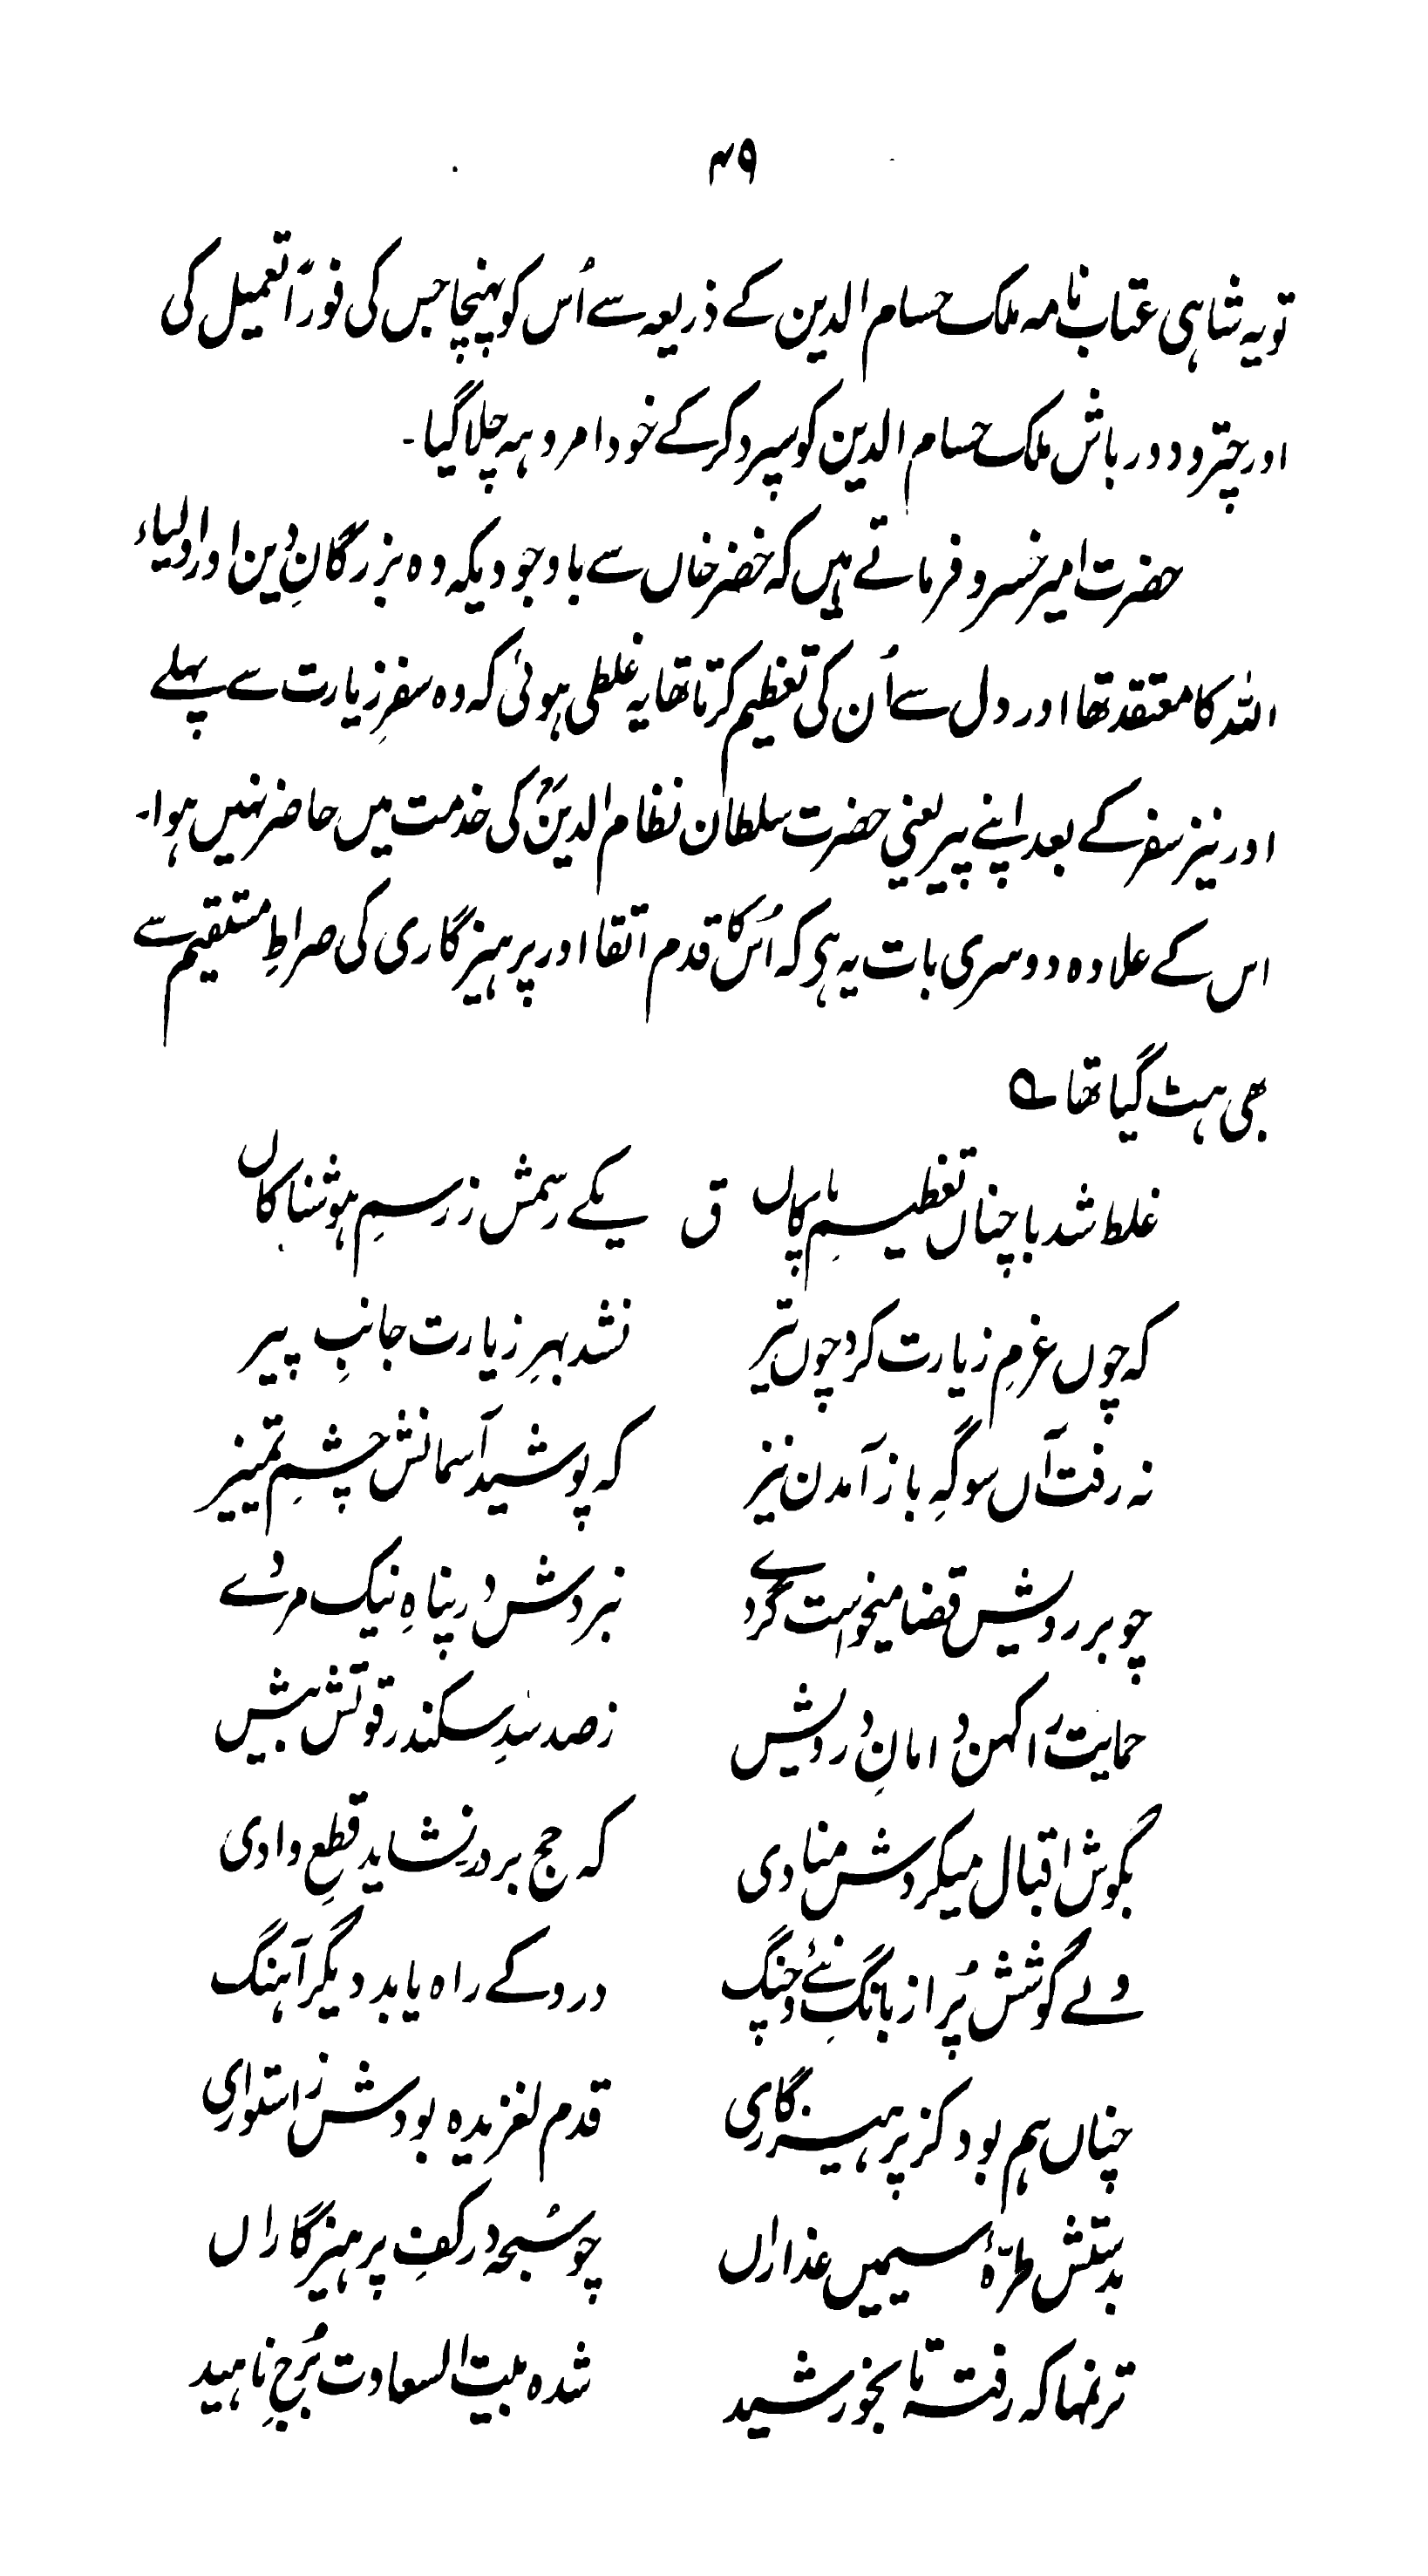 ۴۹
تو یہ شاہی عتاب نامہ ملک حسام الدین کے ذریعہ سے اُس کو پہنچا جس کی فوراً تعمیل کی
اور چتر و دور باش ملک حسام الدین کو سپرد کرکے خود امروہہ چلا گیا۔
حضرت امیر خسرو فرماتے ہیں کہ خضر خاں سے باوجودیکہ وہ بزرگانِ دین اور اولیاء
اللہ کا معتقد تھا اور دل سے اُن کی تعظیم کرتا تھا یہ غلطی ہوئی کہ وہ سفرِ زیارت سے پہلے
اور نیز سفر کے بعد اپنے پیر یعنی حضرت سلطان نظام الدینؒ کی خدمت میں حاضر نہیں ہوا۔
اس کے علاوہ دوسری بات یہ ہی کہ اُس کا قدم اتقا اور پرہیزگاری کی صراطِ مستقیم سے
بھی ہٹ گیا تھا ؎
غلط شد با چناں تعظیمِ پاکاں ق یکے رسمش ز رسمِ ہوشناکاں
کہ چوں عزمِ زیارت کرد چوں تیر نشد بہرِ زیارت جانبِ پیر
نہ رفت آں سوگہِ باز آمدن نیز کہ پوشید آسمانش چشمِ تمییز
چو بر رویش قضا میخواست گردے نبردش در پناہِ نیک مردے
حمایت را کہن دامانِ درویش ز صد سدِ سکندر قوتش بیش
بگوش اقبال میکردش منادی کہ حج برد نشاید قطعِ وادی
ولے گوشش پُر از بانگِ نئے و چنگ درو کے راہ یابد دیگر آہنگ
چناں ہم بود کز پرہیزگاری قدم لغزیدہ بودش ز استواری
بدستش طرّۂ سیمیں عذاراں چو سُبحہ در کفِ پرہیزگاراں
ترنمہا کہ رفتہ تا بخورشید شدہ بیت السعادت بُرجِ ناہید